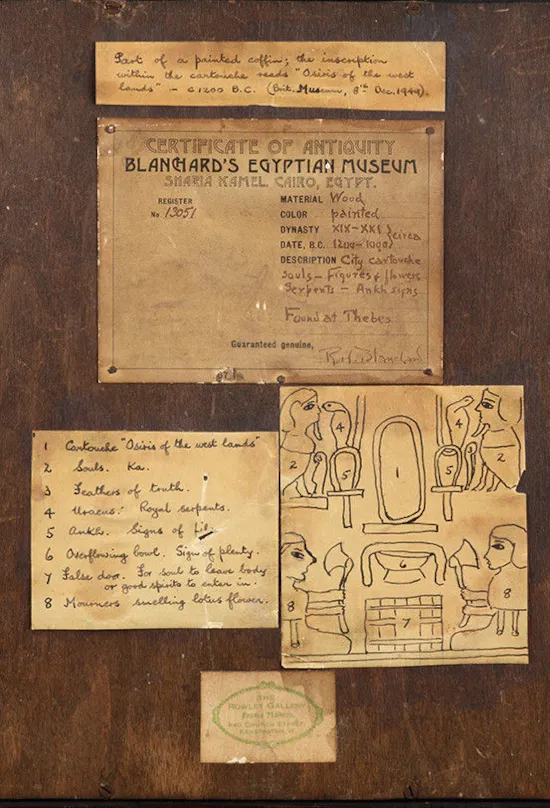 Part of a painted coffin; the inscription
within the cartouche reads "Osiris of the west
lands" — c 1200 B.C. (Brit. Museum, 8th Dec. 1944).
CERTIFICATE OF ANTIQUITY
BLANCHARD'S EGYPTIAN MUSEUM
SHARIA KAMEL. CAIRO, EGYPT.
REGISTER
No. 13051
MATERIAL Wood
COLOR painted
DYNASTY XIX-XXI
DATE, B.C. 1200-1090? } circa
DESCRIPTION City cartouche
souls - Figures & flowers
Serpents - Ankh signs
Found at Thebes
Guaranteed genuine,
R. H. Blanchard
1 Cartouche "Osiris of the west lands"
2 Souls. Ka.
3 Feathers of truth.
4 Uraeus. Royal serpents.
5 Ankhs. Signs of Life.
6 Overflowing bowl. Sign of plenty.
7 False door. For soul to leave body
or good spirits to enter in.
8 Mourners smelling lotus flower.
3 3
4 4
2 5 1 5 2
6
8 7 8
THE
ROWLEY GALLERY
CHURCH STREET
KENSINGTON, W.